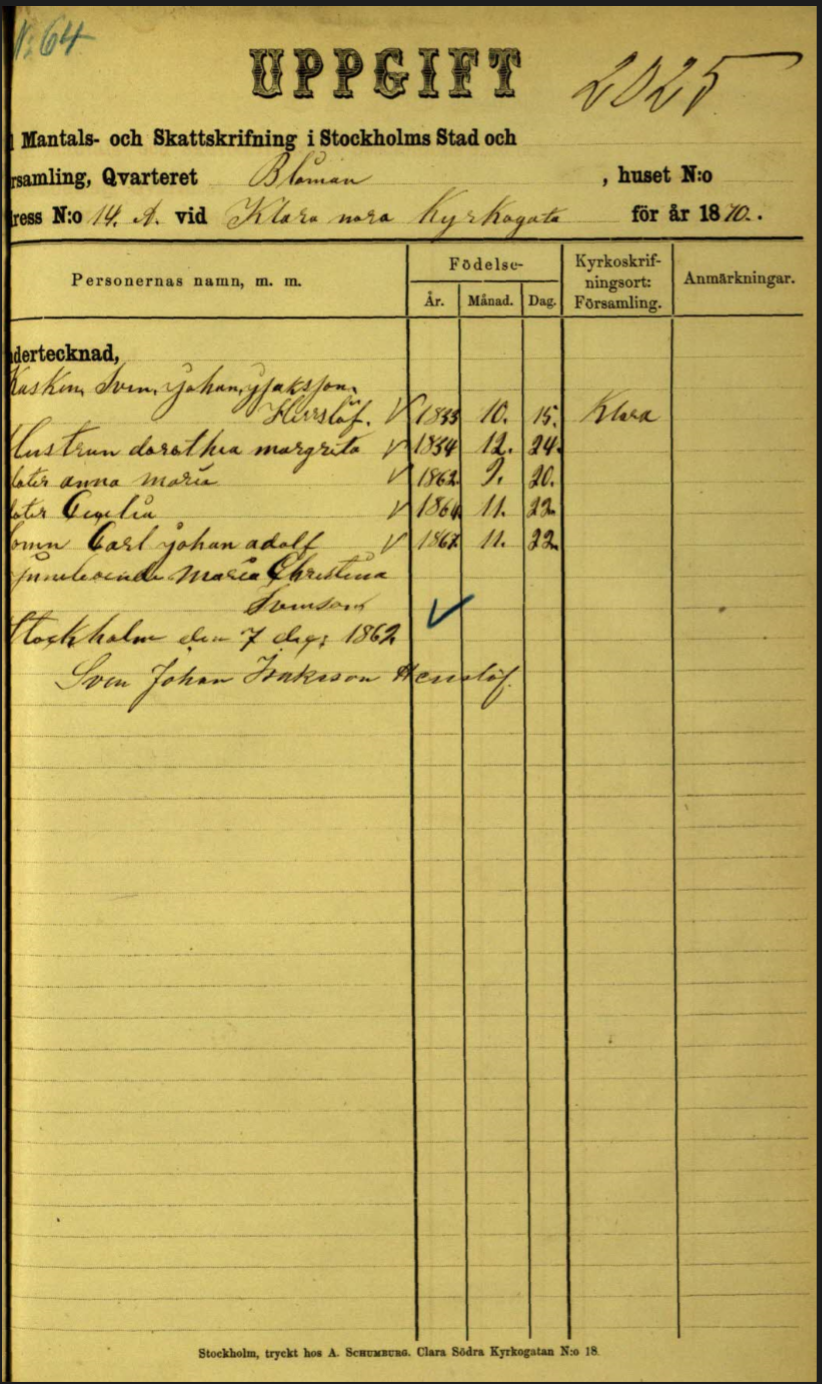 N: 64
UPPGIFT
2025
Mantals- och Skattskrifning i Stockholms Stad och
rsamling, Qvarteret Blåman , huset N:o
ress N:o 14. A. vid Klara nora Kyrkogata för år 1870.
Personernas namn, m. m. Födelse- Kyrkoskrif-
ningsort:
Församling. Anmärkningar.
År. Månad. Dag.
dertecknad,
Sven Johan
1833 10. 15. Klara
Hustrun dorothea margreta 1834 12. 24.
anna maria 1862 9. 20.
Cecilia 1864 11. 22.
Carl johan adolf 1867 11. 22.
maria Christina
Svenson
Stockholm den 7 1862
Sven Johan
Stockholm, tryckt hos A. SCHUMBURG. Clara Södra Kyrkogatan N:o 18.